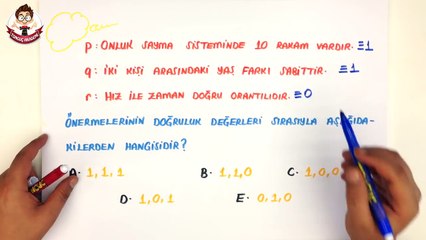 p: ONLUK SAYMA SİSTEMİNDE 10 RAKAM VARDIR. ≡1
q: İKİ KİŞİ ARASINDAKİ YAŞ FARKI SABİTTİR. ≡1
r: HIZ İLE ZAMAN DOĞRU ORANTILIDIR. ≡0
ÖNERMELERİNİN DOĞRULUK DEĞERLERİ SIRASIYLA AŞAĞIDA-
KİLERDEN HANGİSİDİR?
A. 1,1,1 B. 1,1,0 C. 1,0,0
D. 1,0,1 E. 0,1,0